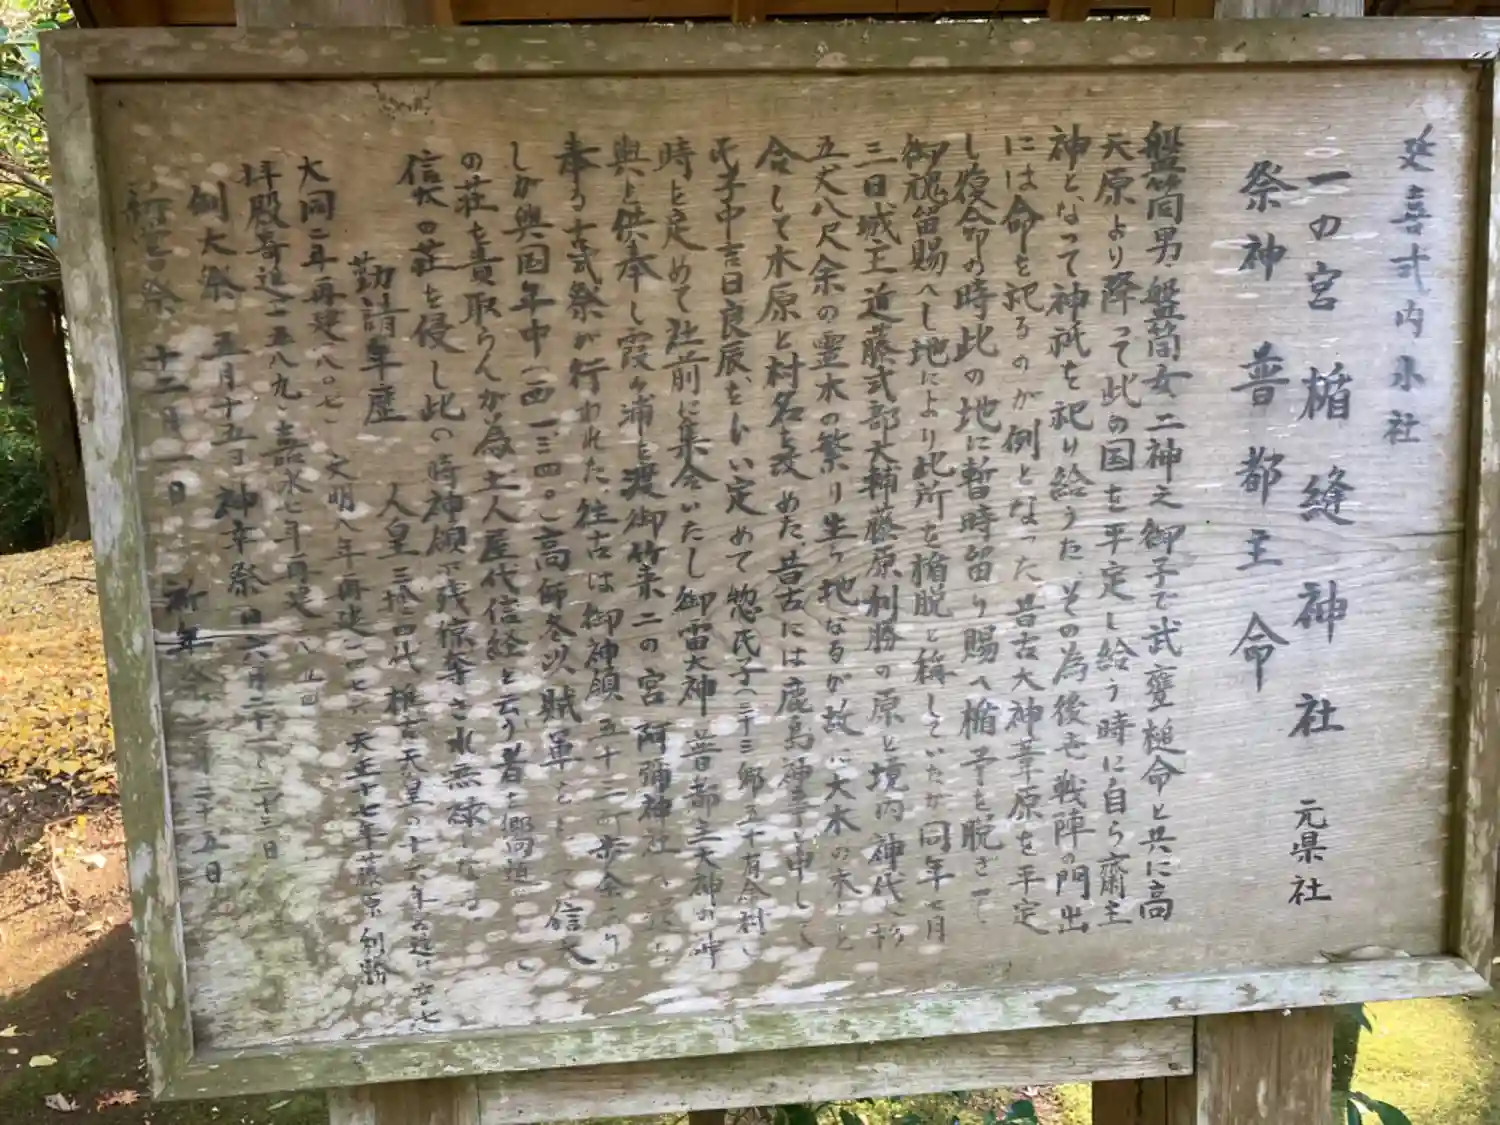 延喜式内小社
一の宮 楯縫神社 元県社
祭神 普都主命
盤筒男、盤筒女、二神之御子で武甕槌命と共に高
天原より降って此の国を平定し給う時に自ら齋主
神となって神祇を祀り給うた、その為後世戦陣の門出
には命を祀るのが例となった 昔古大神葦原を平定
し復命の時此の地に暫時留り賜へ楯予を脱ぎ
御魂留賜へし地により此所を楯脱と称していたが同年七月
三日城主近藤式部大輔藤原利勝の原と境内神代
五丈八尺余の霊木の繁り生う地なるが故に大木の木と
合して木原と村名を改めた、昔古には鹿島神子と申して
氏子中吉日良辰をい定めて惣氏子(三十三郷五十有余村)
時を定めて社前に集合いたし御雷大神 普都主大神の
輿を供奉し霞ヶ浦を渡御竹来二の宮 阿彌神社
奉る古式祭が行われた、往古は御神領五十二町歩余
しが興国年中(西一三四〇)高師冬以賊軍 信太
の荘を責取らんが為土人屋代信経と云う者を郷導
信太の荘を侵し此の時神領で残掠奪され無禄
勧請年歴 人皇三拾四代推古天皇の十六年
大同二年再建(八〇七) 文明八年再建(一四七六) 天正十七年藤原利勝
拝殿寄進(一五八九) 嘉永七年再建
例大祭 五月十五日 神幸祭 六月二十一 二十三日
新嘗祭 十二月一日 祈年 二十五日